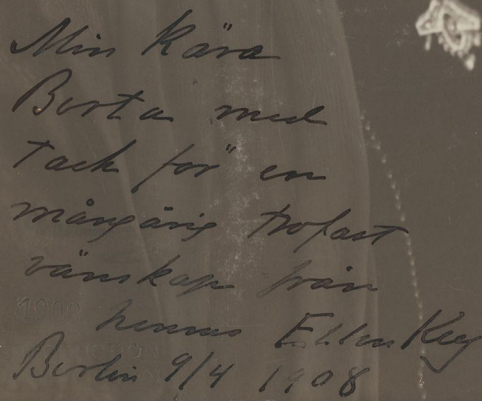 Min Kära
Berta med
tack för en
mångårig trofast
vänskap från
hennes Ellen Key
Berlin 9/4 1908